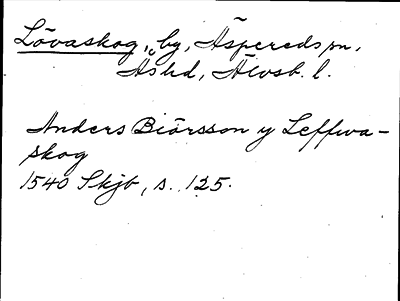 Lövaskog, by, Äspereds sn,
Åshd, Älvsb. l.
Anders Biörsson y Leffwa-
skog
1540 Skjb, s. 125.